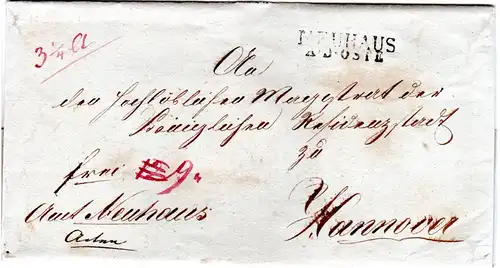 NEUHAUS
A. D. OSTE
An
den Hochlöblichen Magistrat der
Königlichen Residenzstadt
zu
Hannover
frei
9
Amt Neuhaus
Acten